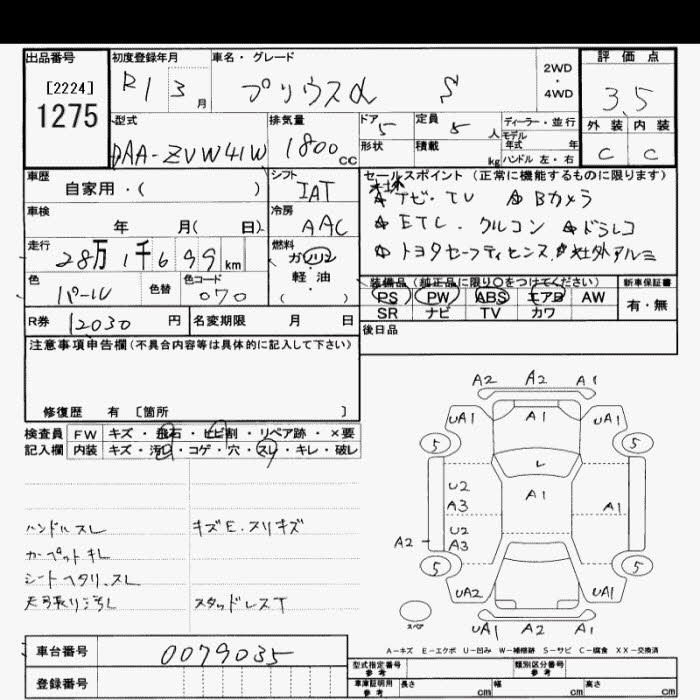 出品番号 初度登録年月 車名・グレード 評価点
[2224] R1 3月 プリウスα S 2WD・4WD 3.5
1275
型式 排気量 ドア 5 定員 5人 ディーラー・並行 外装 内装
モデル年式 年
DAA-ZVW41W 1800cc 形状 積載 kg ハンドル 左・右 C C
車歴 シフト セールスポイント(正常に機能するものに限ります)
自家用・( ) IAT ナビ・TV Bカメラ
車検 冷房 ETC. クルコン ドラレコ
年 月( 日) AAC トヨタセーフティセンス 社外アルミ
走行 燃料
28万1千699km ガソリン
軽・油
( )
色 色替 色コード 装備品(純正品に限り〇をつけてください) 新車保証書
パール 070 PS PW ABS エアB AW 有・無
SR ナビ TV カワ
R券 12030円 名変期限 月 日 後日品
注意事項申告欄(不具合内容等は具体的に記入して下さい)
修復歴 有 [箇所 ]
検査員 FW キズ・飛石・ヒビ割・リペア跡・×要
記入欄 内装 キズ・汚レ・コゲ・穴・スレ・キレ・破レ
A2 A2 A1
UA1 A1 UA1
5 5
L
U2 A1
A3 A1
U2
A2 A3
5 5
UA2 UA1
スペア
UA1 A2 A1
ハンドルスレ キズE.スリキズ
カーペットキレ
シートヘタリ.スレ
天張り汚レ スタッドレスT
A-キズ E-エクボ U-凹み W-補修跡 S-サビ C-腐食 XX-交換済
車台番号 0079035
登録番号
型式指定番号 参考 類別区分番号 参考
車庫証明用 参考 長さ cm 幅 cm 高さ cm